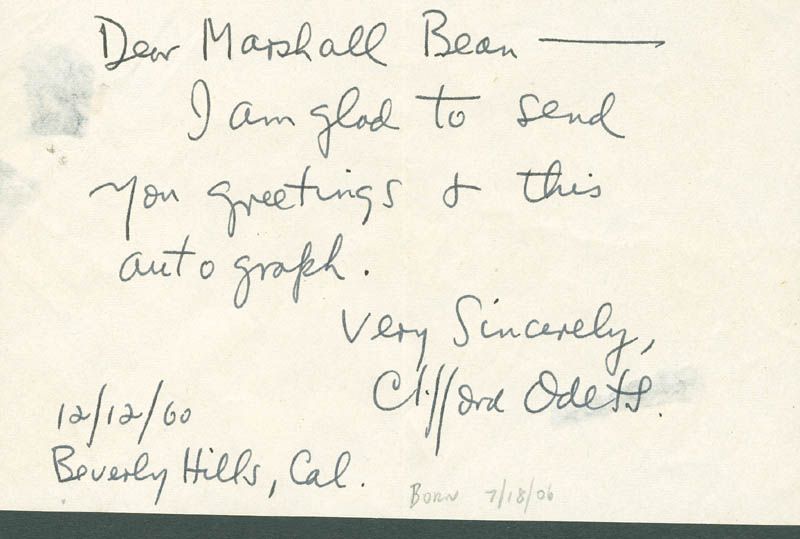 Dear Marshall Bean —
I am glad to send
you greetings & this
autograph.
Very Sincerely,
Clifford Odets.
12/12/60
Beverly Hills, Cal.
BORN 7/18/06